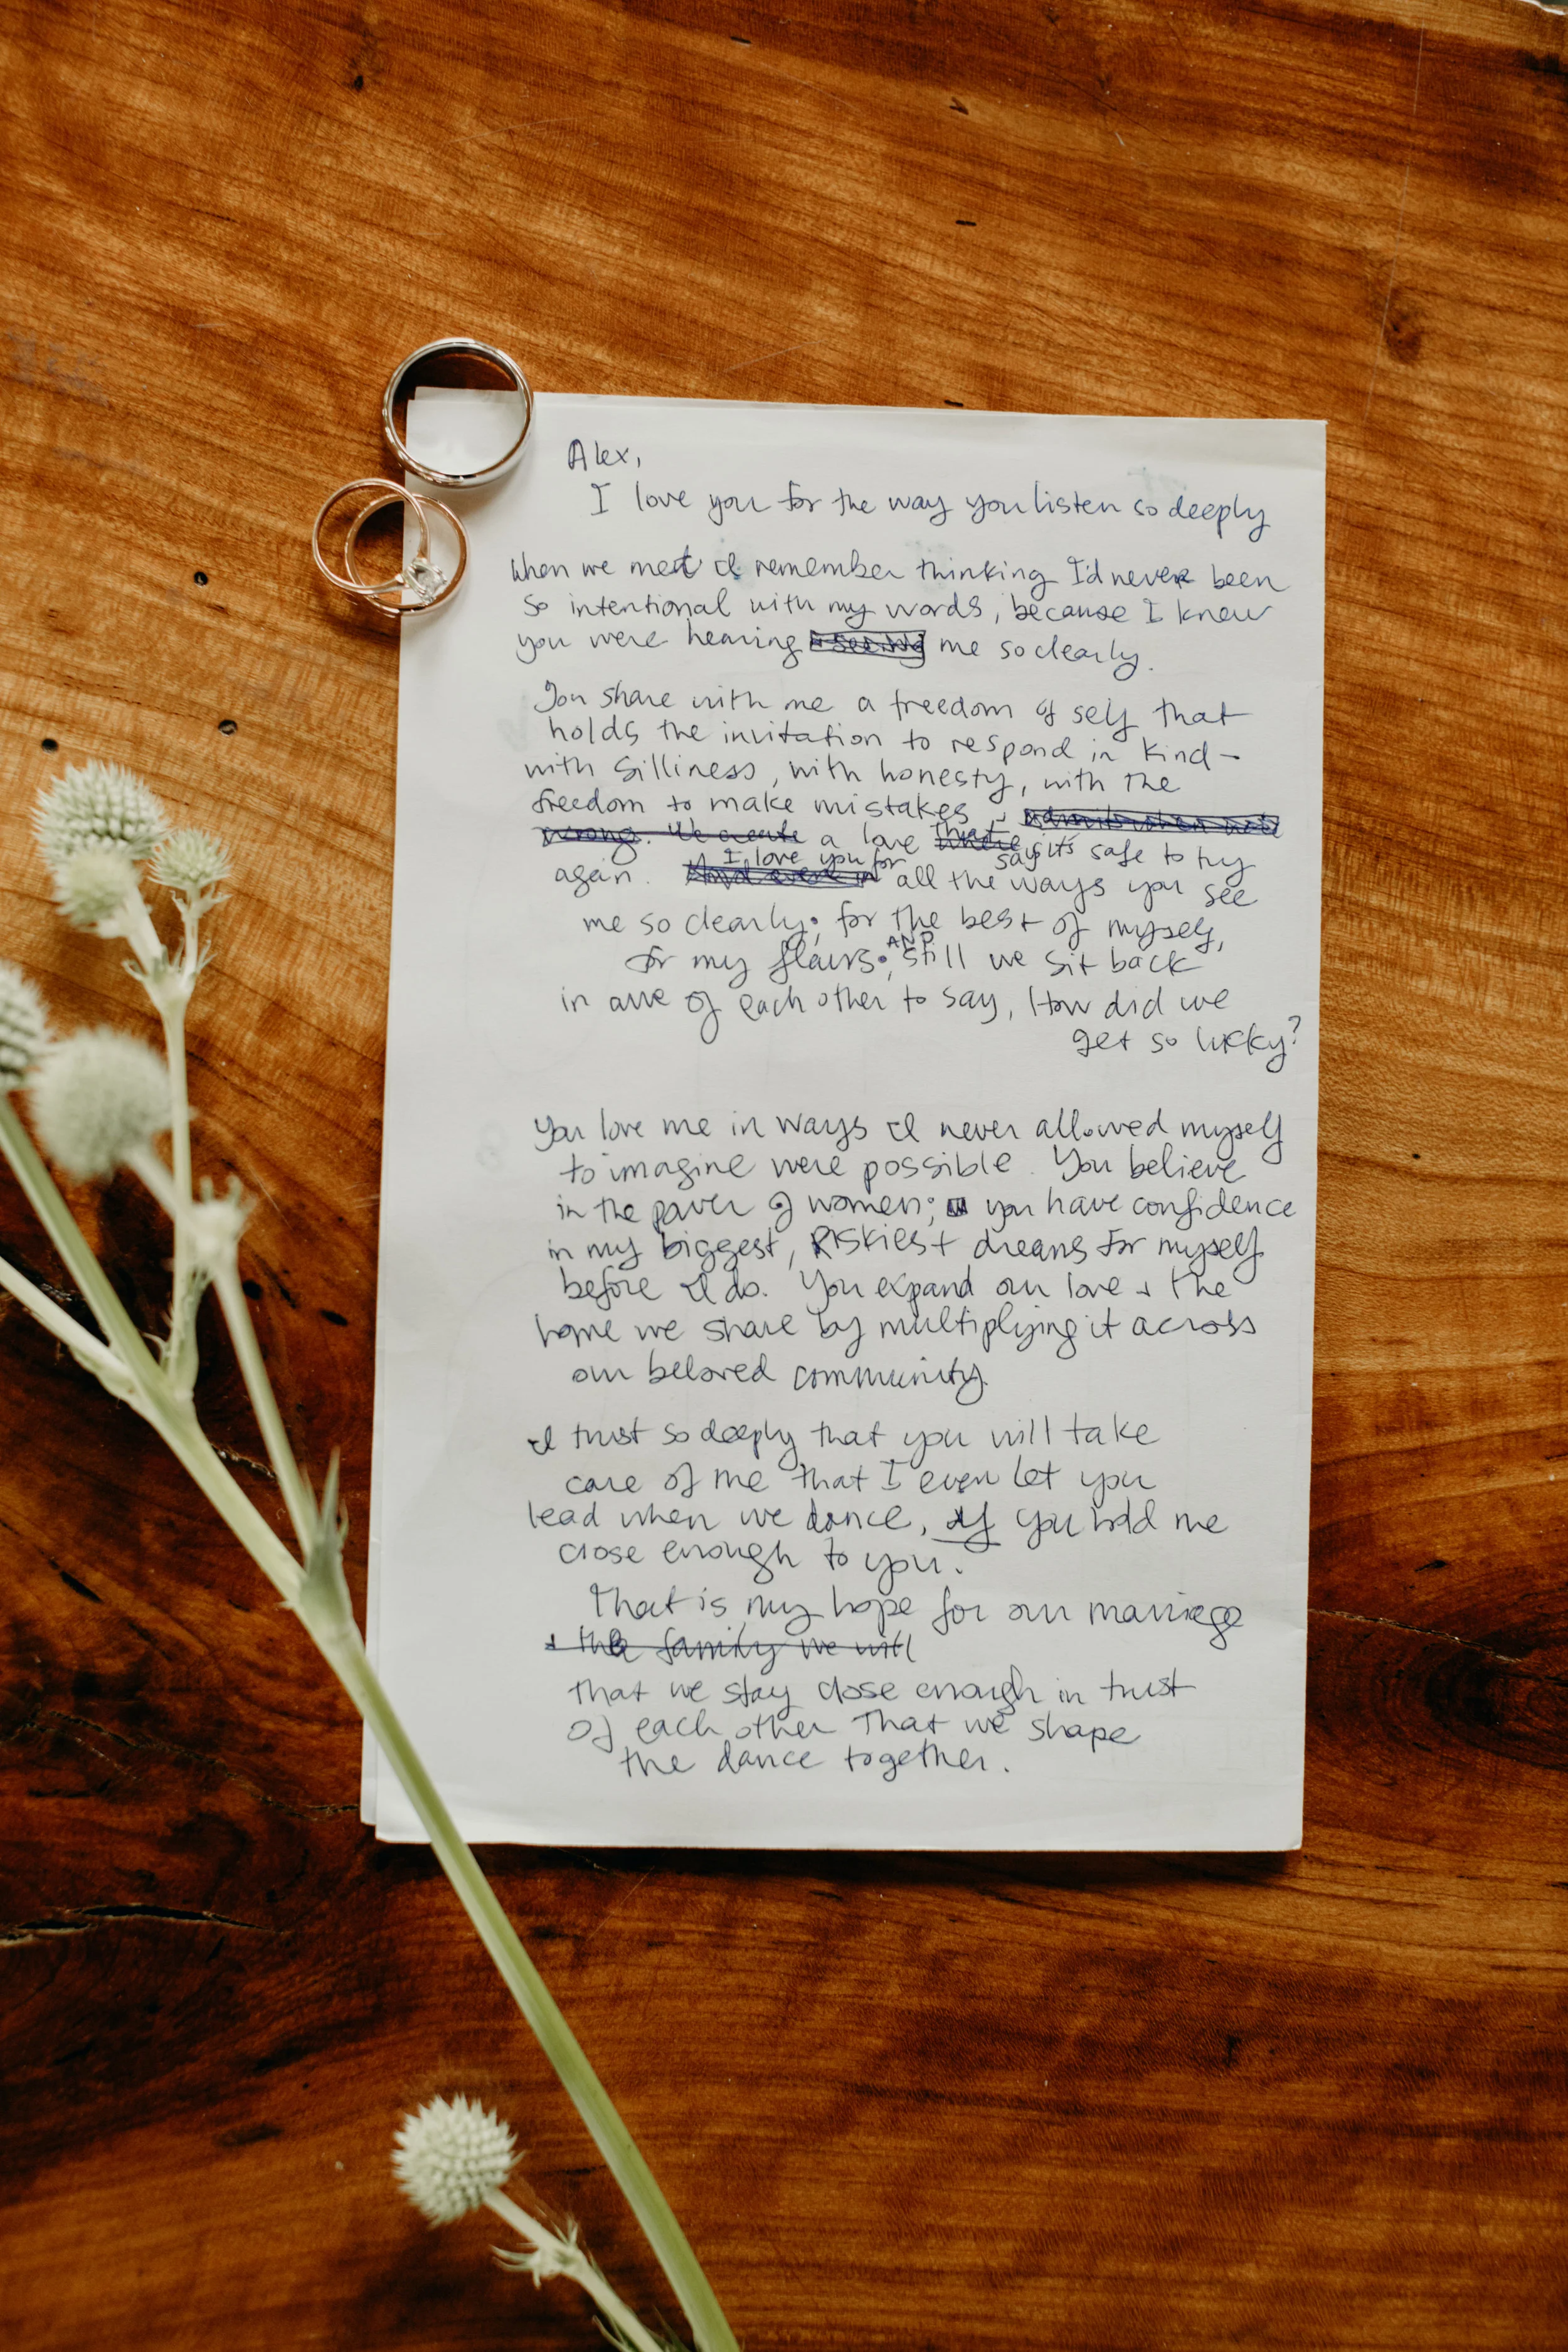 Alex,
I love you for the way you listen so deeply
When we met I remember thinking I'd never been
so intentional with my words, because I knew
you were hearing + seeing me so clearly.
You share with me a freedom of self that
holds the invitation to respond in kind -
with silliness, with honesty, with the
freedom to make mistakes, + admit when we're
wrong. We create a love where that says it's safe to try
again. I love you for all the ways you see
me so clearly; for the best of myself,
for my flaws; AND still we sit back
in awe of each other to say, How did we
get so lucky?
You love me in ways I never allowed myself
to imagine were possible. You believe
in the power of women; you have confidence
in my biggest, RISKIEST dreams for myself
before I do. You expand our love + the
home we share by multiplying it across
our beloved community.
I trust so deeply that you will take
care of me that I even let you
lead when we dance, if you hold me
close enough to you.
That is my hope for our marriage
+ the family we will
that we stay close enough in trust
of each other that we shape
the dance together.